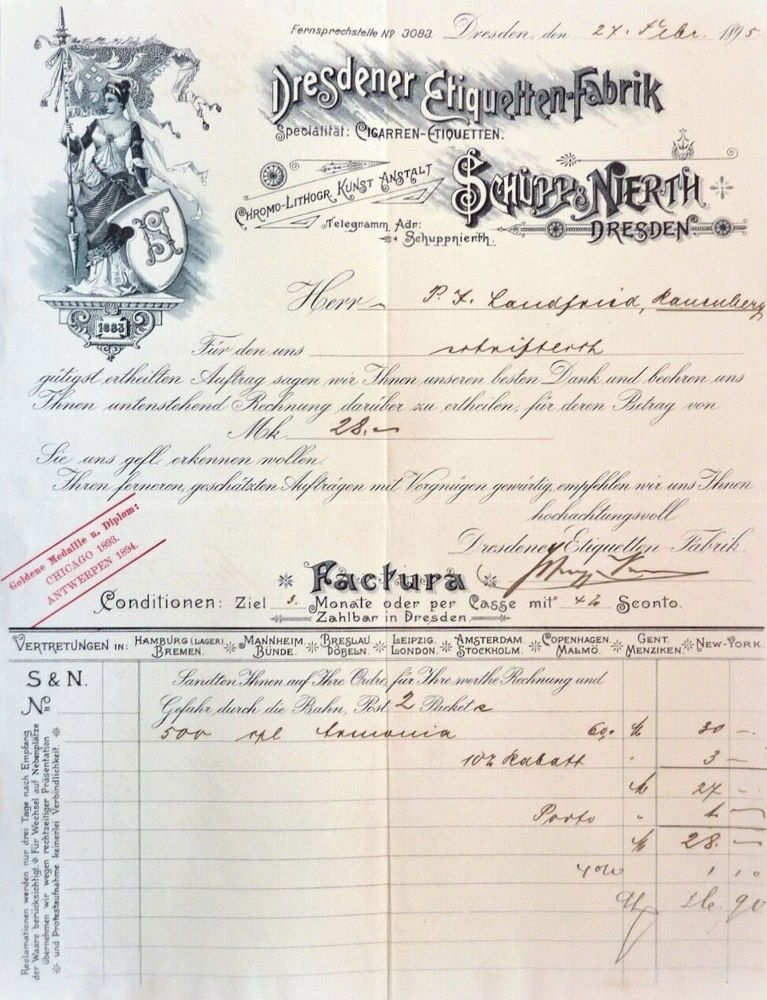 Fernsprechstelle No 3083. Dresden, den 27. Febr. 1895.
Dresdener Etiquetten-Fabrik
Specialität: Cigarren-Etiquetten.
Chromo-Lithogr. Kunst Anstalt
Schupp & Nierth
Dresden
Telegramm Adr:
Schuppnierth.
1883
Herrn P. J. Landfried, Rauenberg
Für den uns
gütigst ertheilten Auftrag sagen wir Ihnen unseren besten Dank und beehren uns
Ihnen untenstehend Rechnung darüber zu ertheilen, für deren Betrag von
Mk. 28.–
Sie uns gefl. erkennen wollen.
Ihren ferneren, geschätzten Aufträgen mit Vergnügen gewärtig, empfehlen wir uns Ihnen
hochachtungsvoll
Dresdener Etiquetten-Fabrik.
Goldene Medaille u. Diplom:
CHICAGO 1893.
ANTWERPEN 1894.
Factura
Conditionen: Ziel 3. Monate oder per Casse mit 4% Sconto.
Zahlbar in Dresden.
Vertretungen in: Hamburg (Lager) Bremen. Mannheim. Bünde. Breslau. Döbeln. Leipzig. London. Amsterdam Stockholm. Copenhagen. Malmö. Gent. Menziken. New-York.
S & N.
No
Sandten Ihnen auf Ihre Ordre, für Ihre werthe Rechnung und
Gefahr, durch die Bahn, Post 2 Packete
500 Armonia 60. 30 –.
10% Rabatt 3 –
27 –
Porto 1 –
28. –
4%
Reclamationen werden nur drei Tage nach Empfang
der Waare berücksichtigt. Für Wechsel auf Nebenplätze
übernehmen wir wegen rechtzeitiger Präsentation
und Protestaufnahme keinerlei Verbindlichkeit.